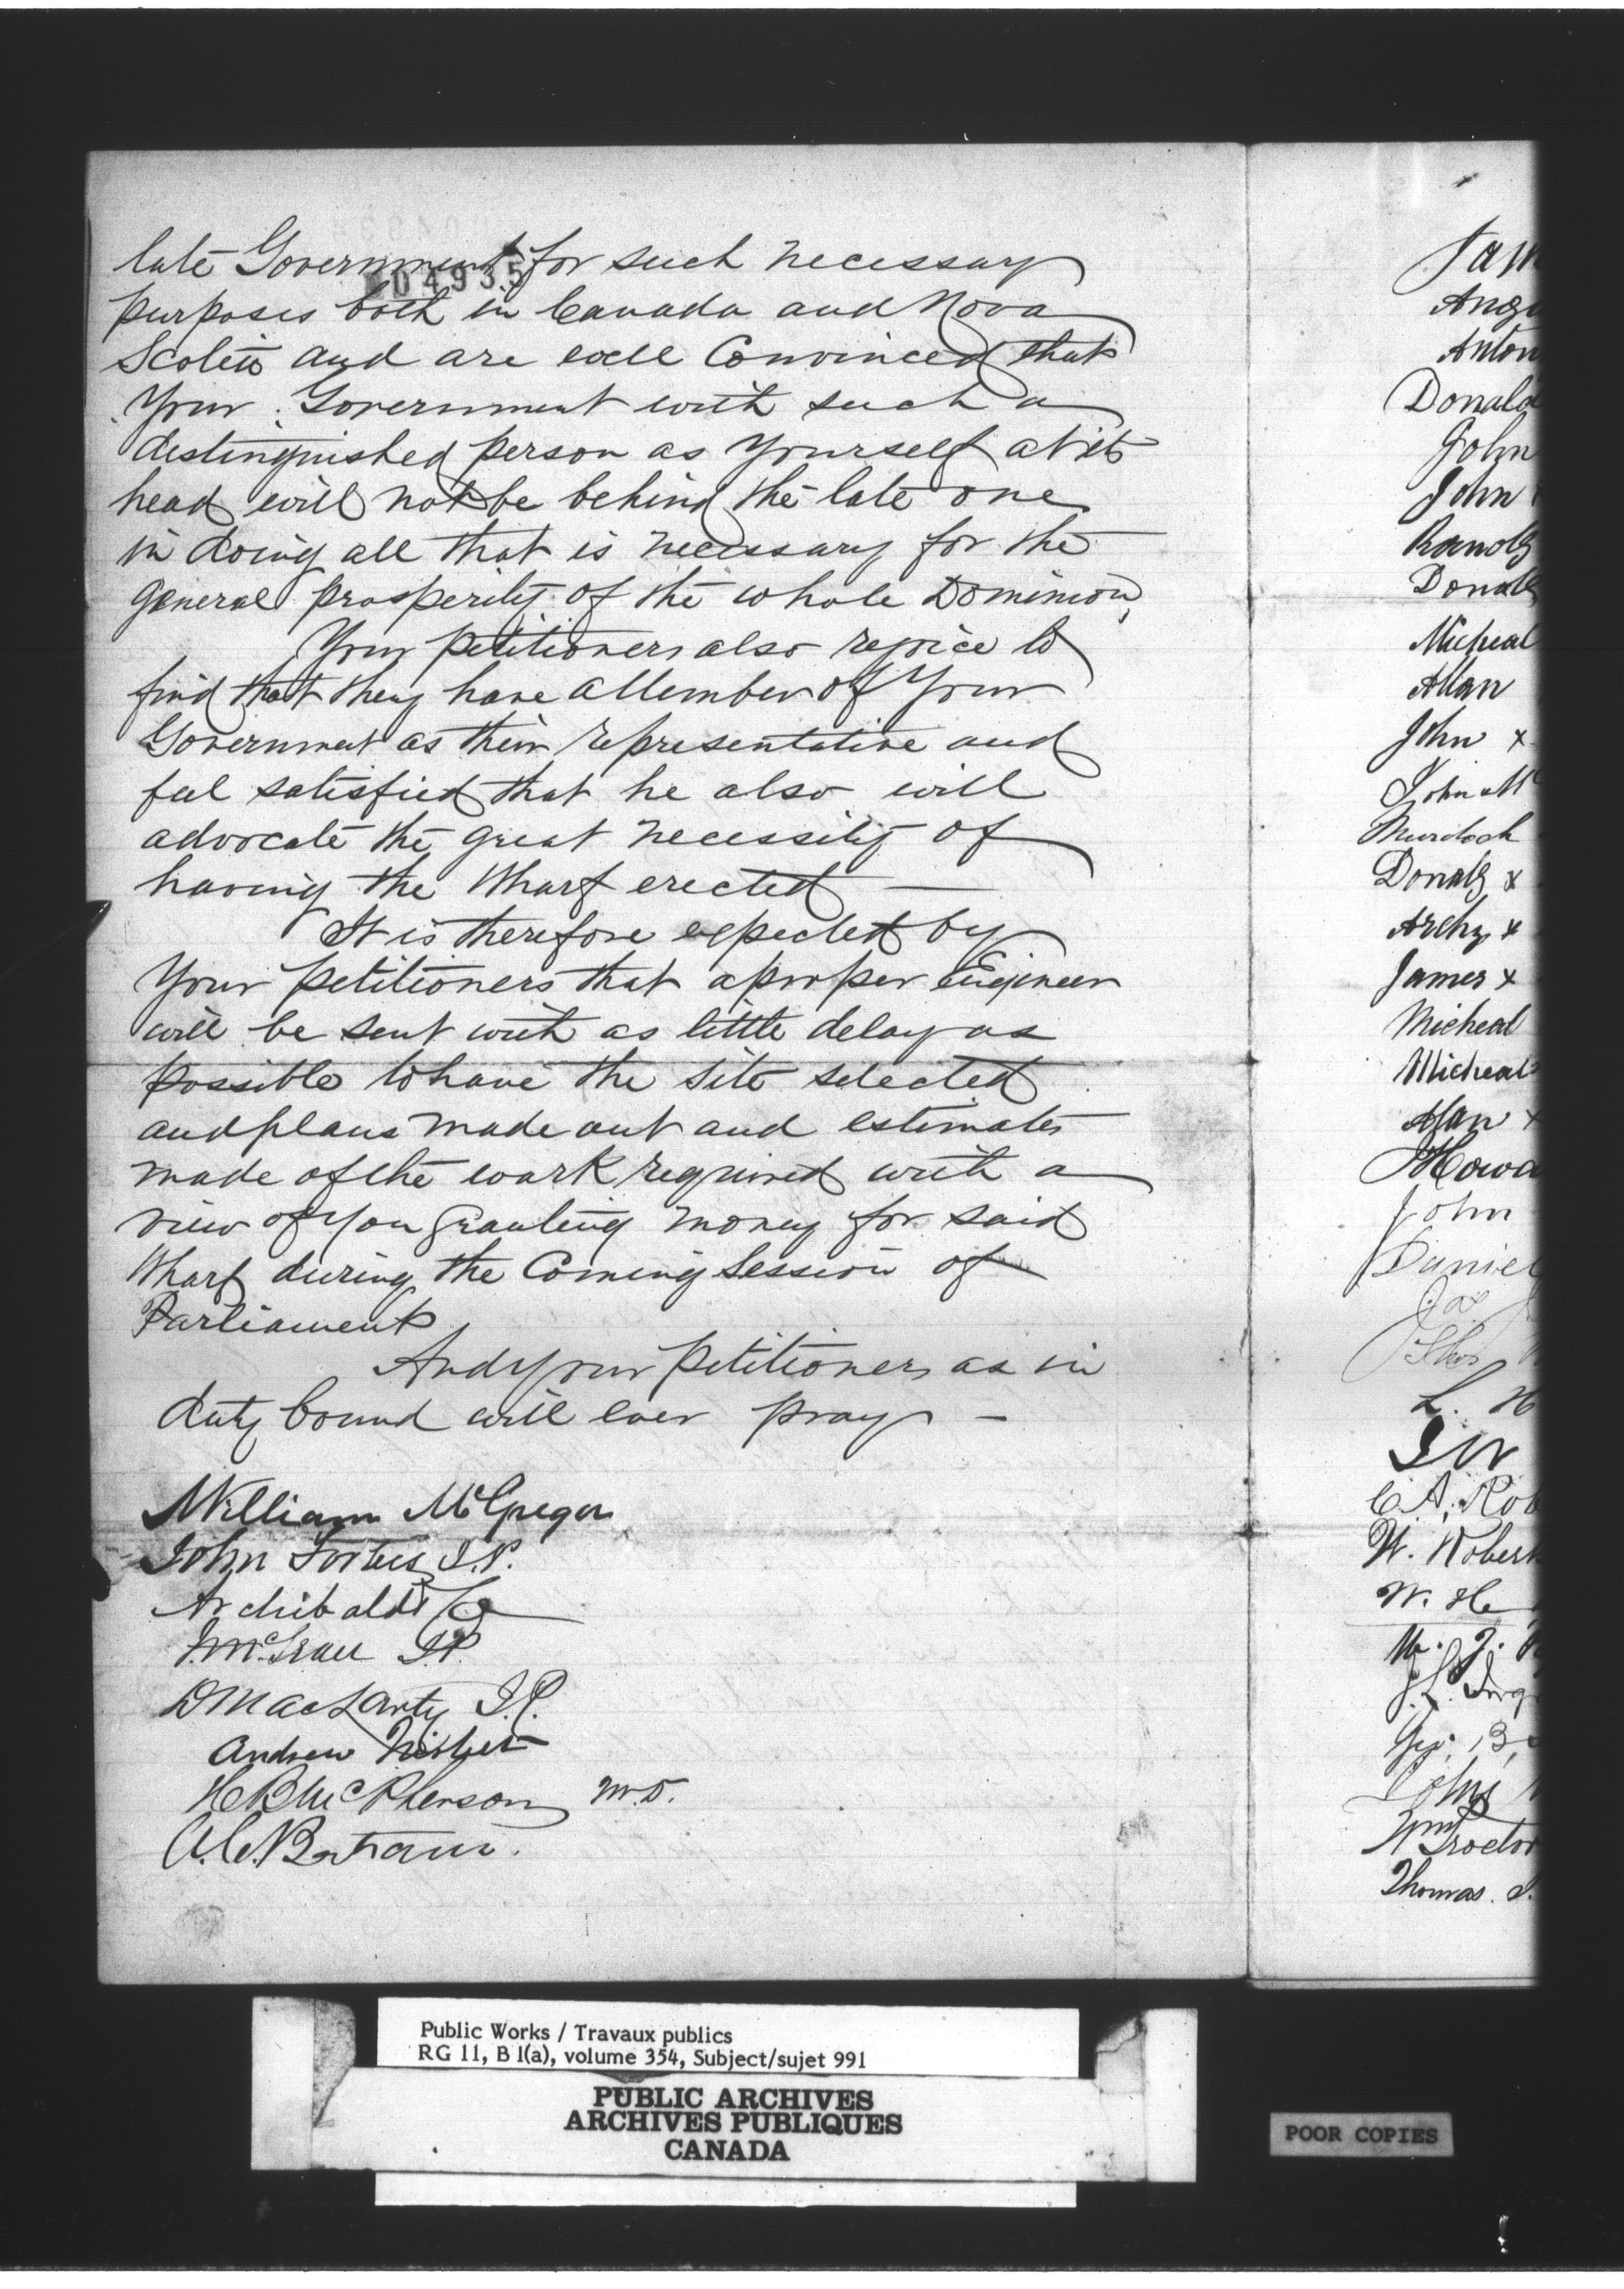 late Government for such necessary
04935
purposes both in Canada and Nova
Scotia and are well Convinced that
Your Government with such a
distinguished person as Yourself at its
head will not be behind the late one
in doing all that is necessary for the
general prosperity of the whole Dominion,
Your petitioners also rejoice to
find that they have a Member of Your
Government as their representative and
feel satisfied that he also will
advocate the great necessity of
having the Wharf erected —
It is therefore expected by
Your petitioners that a proper Engineer
will be sent with as little delay as
possible to have the site selected
and plans made out and estimates
made of the work required with a
view of you granting money for said
Wharf during the Coming Session of
Parliament
And your petitioners as in
duty bound will ever pray —
William McGregor
John J.P.
Archibald
J.P.
J.P.
Andrew Nisbet
McPherson M.D.
Jam
Angu
Anton
Donald
John
John
Donald
Micheal
Allan
John x
John Mc
Murdoch
Donald x
Archy x
James x
Micheal
Micheal
Allan x
Howa
John
Daniel
Thos
L. H
C A. Rob
W. Robert
W. He
W. J.
Geo. B
John
Wm
Proctor
Thomas.
Public Works / Travaux publics
RG 11, B 1(a), volume 354, Subject/sujet 991
PUBLIC ARCHIVES
ARCHIVES PUBLIQUES
CANADA
POOR COPIES